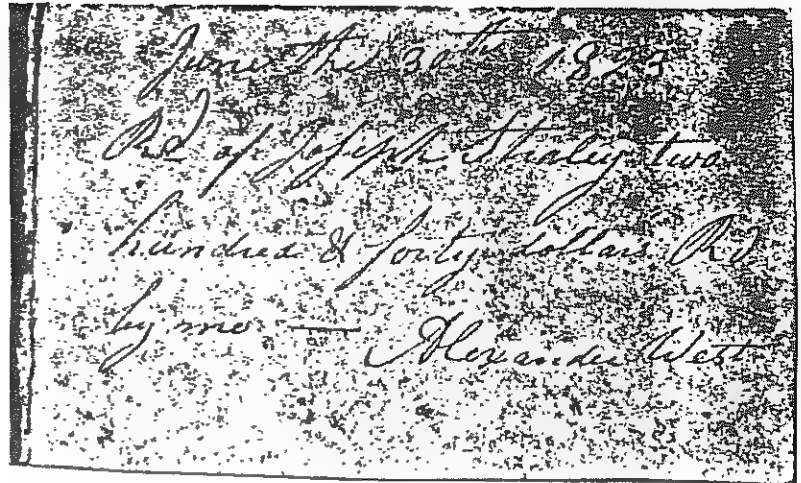 June the 30th 1823
Rd of Joseph Staley two
hundred & forty dollars Rd
by me —
Alexander West